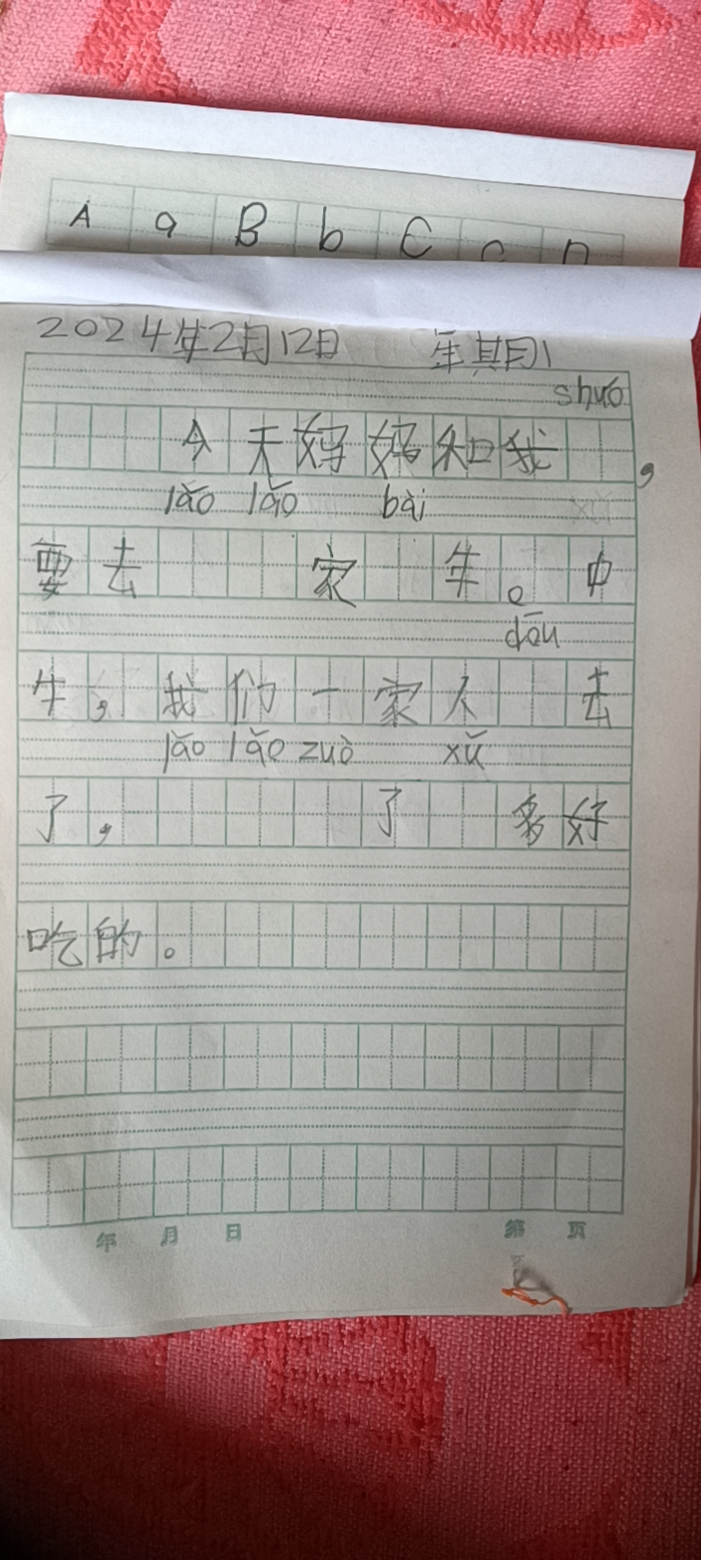 A a B b C c D
2024年2月12日 星期1
shuō
今天妈妈和我 ,
lǎo lǎo bài
要去 家 年。中
dōu
午,我们一家人 去
lǎo lǎo zuò xǔ
了, 了 多好
吃的。
年 月 日 第 页